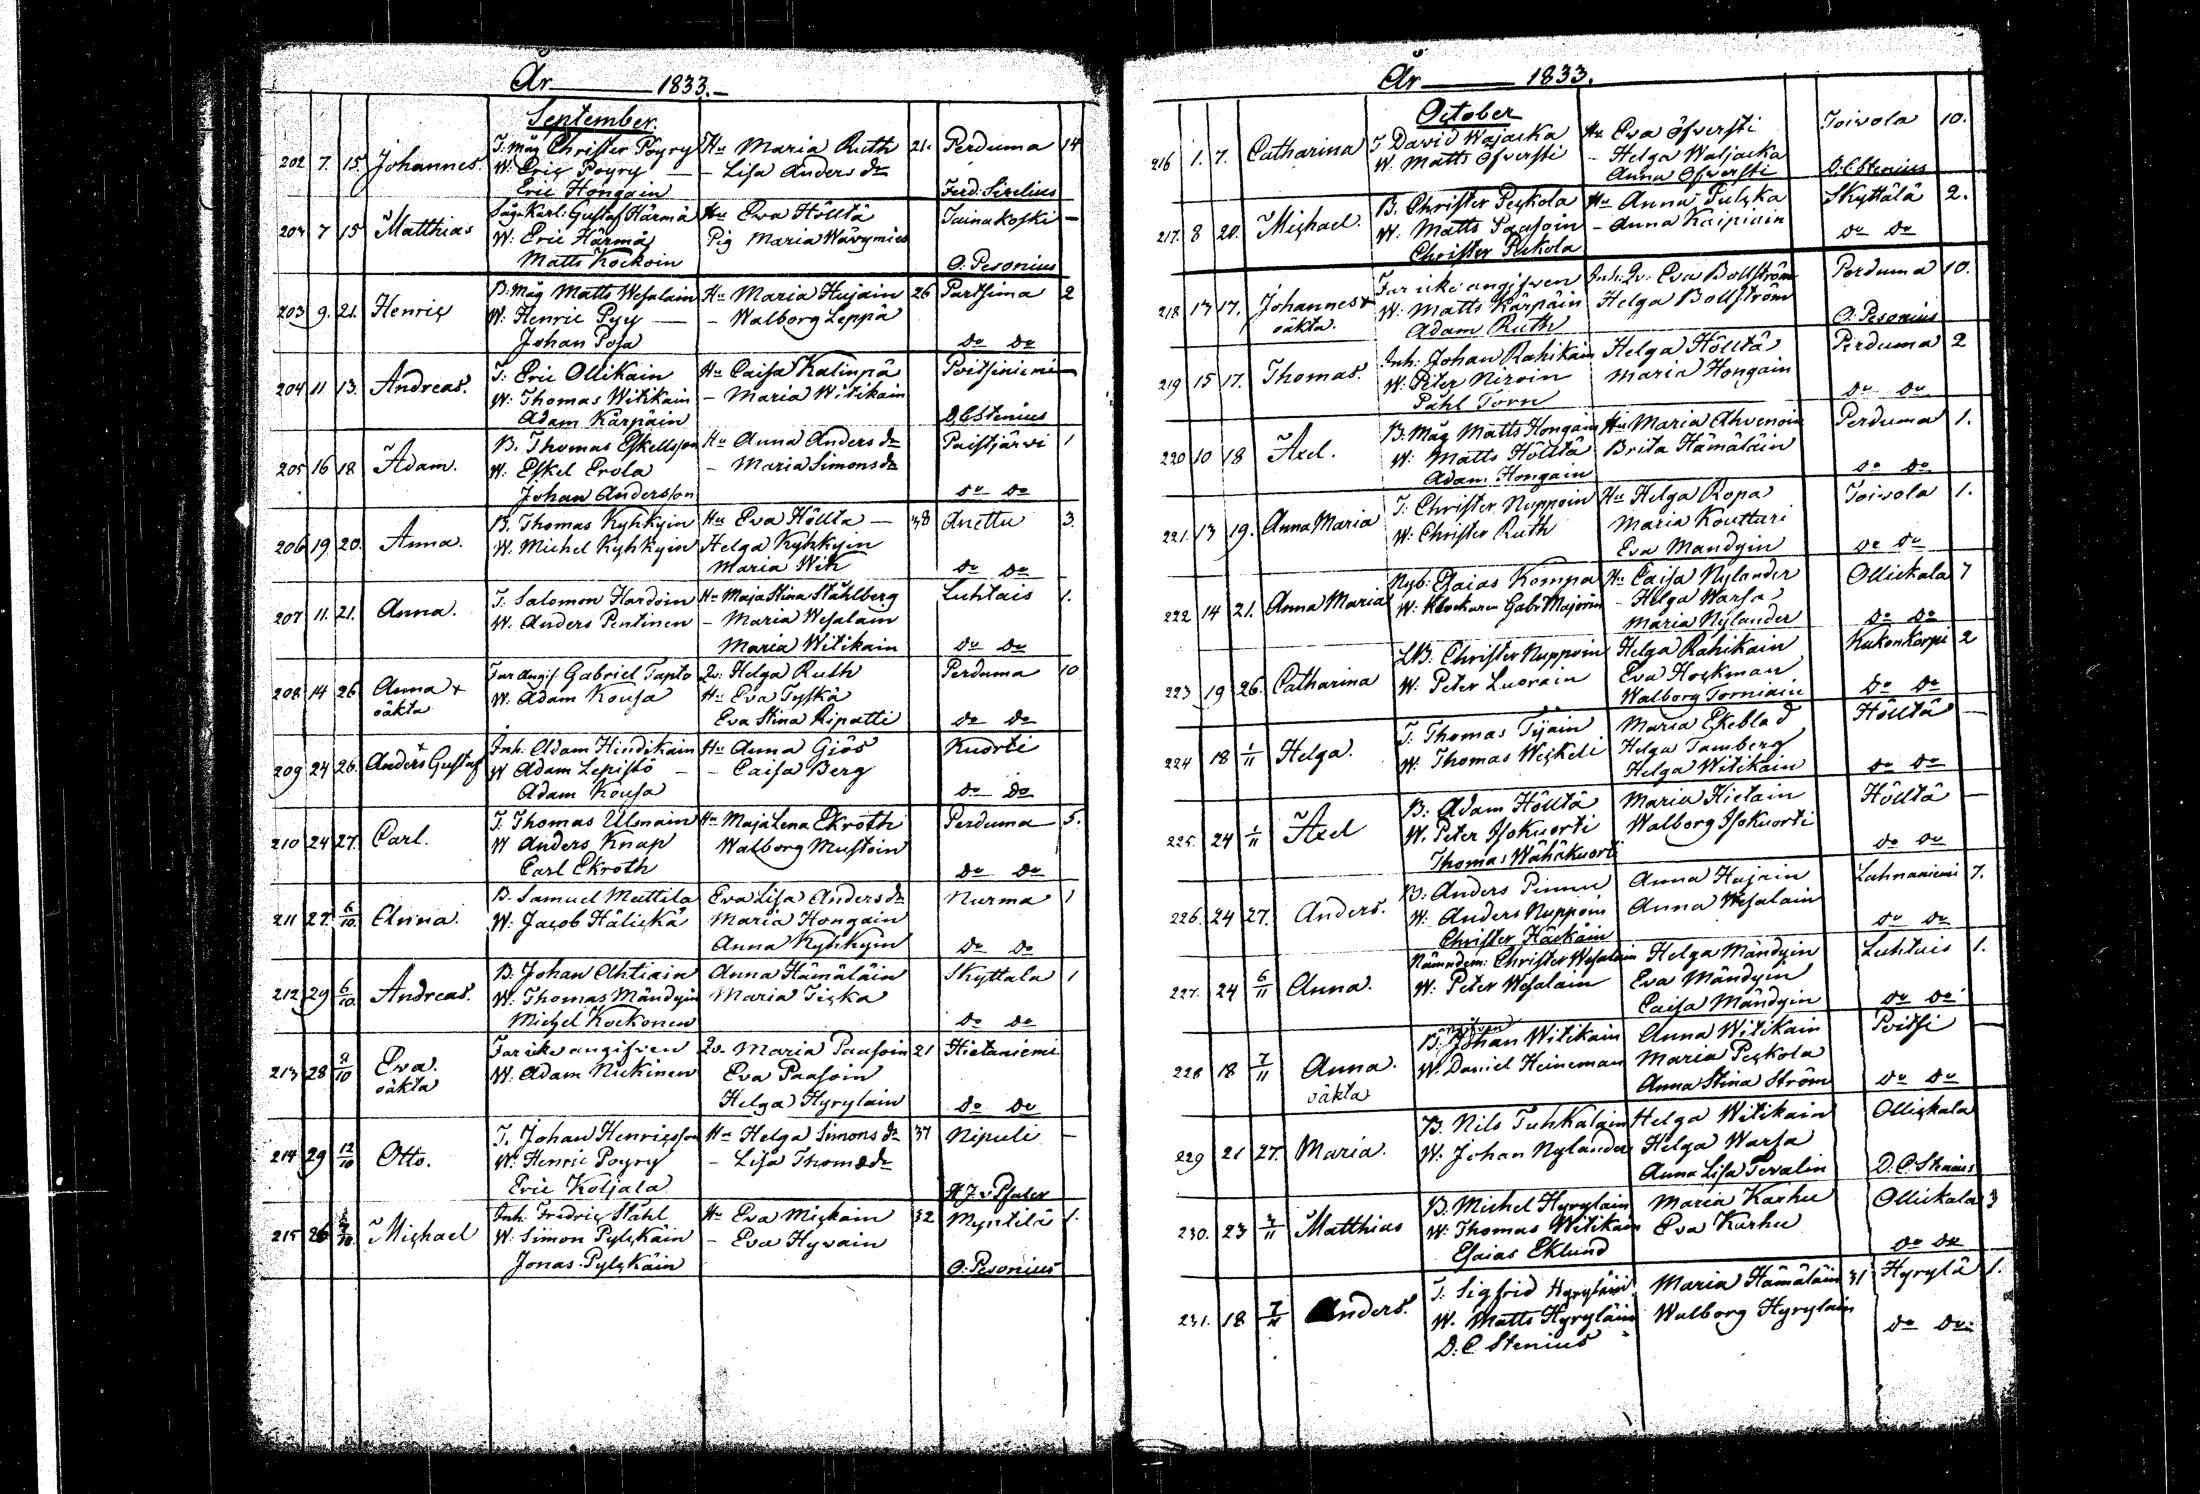 År 1833.
September
202 7. 15. Johannes. T. Måg Christer Pöyry Hu Maria Ruth 21. Perduma 14
W. Eric Pöyry - Lisa Anders dr
Eric Hongain Ferd: Sirelius
203 7 15 Matthias Såg: Karl: Gustaf Härmä Hu Eva Hölltä Tainakoski -
W: Eric Härmä Pig Maria Wävymies
Matts Kockoin O. Pesonius
203 9. 21. Henric B: Måg Matts Wesalain Hu Maria Hujain 26 Partsima 2
W: Henric Pyy - Walborg Leppä
Johan Posa do do
204 11 13. Andreas. T: Eric Ollikain Hu Caisa Kalinpä Poitsiniemi
W: Thomas Witikain - Maria Witikain
Adam Kärpäin D. C. Stenius
205 16 18 Adam. B. Thomas Eskellsson Hu Anna Anders dr Paistjärvi 1
W: Eskel Erola - Maria Simons dr
Johan Andersson do do
206 19 20. Anna. B. Thomas Kyhkyin Hu Eva Höllta 38 Anettu 3.
W. Michel Kyhkyin Helga Kyhkyin
Maria Wih do do
207 11. 21. Anna. T. Salomon Hardoin Hu Maja Stina Ståhlberg Luhtais 1.
W. Anders Pentinen - Maria Wesalain
Maria Witikain do do
208 14 26 Anna + Far angif. Gabriel Tapto Qv: Helga Ruth Perduma 10
oäkta W. Adam Kousa Hu Eva Tyskä
Eva Stina Ripatti do do
209 24 26. Anders Gustaf + Inh: Adam Hindikain Hu Anna Giös Kuorti
W Adam Lepistö - Caisa Berg
Adam Kousa do do
210 24 27. Carl. T. Thomas Ulmain Hu Maja Lena Ekroth Perduma 5.
W Anders Knap Walborg Mustoin
Carl Ekroth do do
211 27. 6/10. Anna. B. Samuel Mattila Eva Lisa Anders dr Nurma 1
W: Jacob Hälickä Maria Hongain
Anna Kyhkyin do do
212 29 6/10. Andreas. B. Johan Ahtiain Anna Hämäläin Skyttala 1
W. Thomas Mändyin Maria Ticka
Michel Kockonen do do
213 28 9/10 Eva. Far icke angifven Qv. Maria Paasoin 21 Hietaniemi
oäkta W. Adam Nickinen Eva Paasoin
Helga Hyrylain do do
214 29 12/10 Otto. T. Johan Henricsson Hu Helga Simons dr 37 Nipuli -
W: Henric Poyry - Lisa Thoms dr
Eric Koljala
215 26 /10. Michael Inh: Fredric Ståhl Hu Eva Mickain 32 Myntilä 1.
W: Simon Pylckäin - Eva Hyvain
Jonas Pylckäin O: Pesonius
År 1833.
October
216 1. 7. Catharina T David Wajacka Hu Eva Öfversti Toivola 10.
W. Matts Öfversti - Helga Waljacka
Anna Öfversti D. C. Stenius
217. 8 20. Michael. B. Christer Peckola Hu Anna Tulcka Skyttälä 2.
W: Matts Paasoin - Anna Kaipiain
Christer Peckola do do
218 13 17. Johannes + Far icke angifven Inh: Qv: Eva Bollström Perduma 10.
oäkta. W: Matts Kärpäin Helga Bollström
Adam Ruth O: Pesonius
219 15 17. Thomas. Inh: Johan Rahikain Helga Hölltä Perduma 2
W: Peter Niroin Maria Hongain
Påhl Torn do do
220 10 18 Axel. B: Måg Matts Hongain Hu Maria Ahvenoin Perduma 1.
W: Matts Hölltä Brita Hämäläin
Adam Hongain do do
221. 13 19. Anna Maria T: Christer Nuppoin Hu Helga Ropa Toivola 1.
W: Christer Ruth Maria Koutturi
Eva Mandyin do do
222 14 21. Anna Maria Nyb: Esaias Kompa Hu Caisa Nylander Ollickala 7
W: Klockaren Gab: Majorin - Helga Warsa
Maria Nylander do do
223 19 26. Catharina LB: Christer Nuppoin Helga Rahikain Kukonkorpi 2
W: Peter Luorain Eva Hockman
Walborg Torniain do do
224 18 1/11 Helga. T: Thomas Tijain Maria Ekeblad Hölltä -
W: Thomas Weckeli Helga Tamberg
Helga Witikain do do
225. 24 1/11 Axel B: Adam Hölltä Maria Hietain Hölltä -
W. Peter Isokuorti Walborg Isokuorti
Thomas Wähäkuorti do do
226. 24 27. Anders. B: Anders Pinnu Anna Hujain Lahnaniemi 7.
W: Anders Nuppoin Anna Wesalain
Christer Häckäin do do
227. 24 6/11 Anna. Nämndem: Christer Wesalain Helga Mändyin Luhtais 1.
W: Peter Wesalain Eva Mändyin
Caisa Mändyin do do
angifven
228 18 7/11 Anna. B: Johan Witikain Anna Witikain Poitsi
oäkta W. Daniel Heineman Maria Peckola
Anna Stina Ström do do
229 21 27. Maria. B. Nils Tuhkalain Helga Witikain Ollickala
W: Johan Nylander Helga Warsa
Anna Lisa Tevalin D. C. Stenius
230. 23 3/11 Matthias B. Michel Hyrylain Maria Karhu Ollickala 3
W: Thomas Witikain Eva Karhu
Esaias Eklund do do
231. 18 7/11 Anders. T. Sigfrid Hyryläin Maria Hämäläin 31 Hyrylä 1.
W. Matts Hyryläin Walborg Hyrylain
D. C. Stenius do do